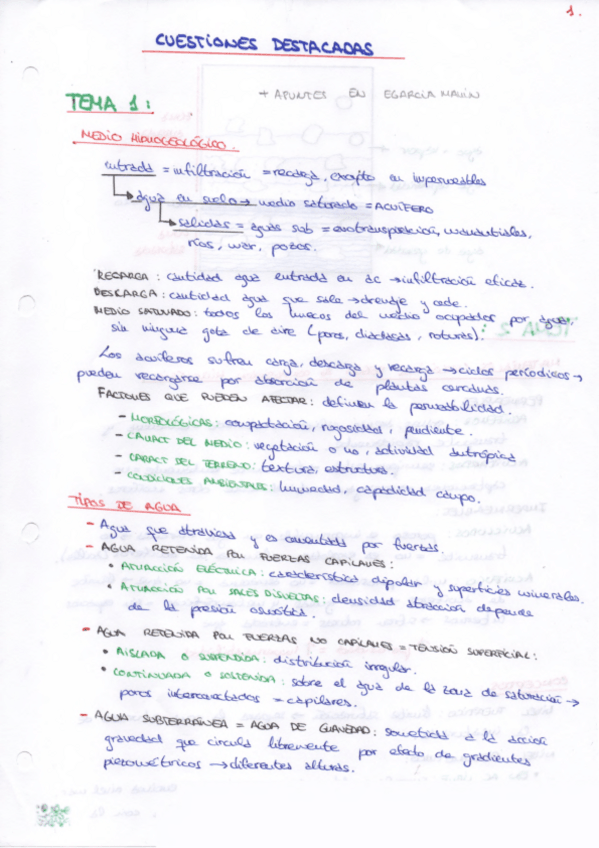 1.
CUESTIONES DESTACADAS
+ APUNTES EN EGARCIA MARIN
TEMA 1:
MEDIO HIDROGEOLÓGICO.
entrada = infiltración = recarga, excepto en impermeables
agua en suelo → medio saturado = ACUÍFERO
salidas = aguas sub = evotranspiración, manantiales,
ríos, mar, pozos.
RECARGA: cantidad agua entrada en ac → infiltración eficaz.
DESCARGA: cantidad agua que sale → drenaje y cede.
MEDIO SATURADO: todos los huecos del medio ocupados por agua,
sin ninguna gota de aire (poros, diaclasas, roturas).
Los acuíferos sufren carga, descarga y recarga → ciclos periódicos →
pueden recargarse por absorción de plantas cercanas.
FACTORES QUE PUEDEN AFECTAR: definen la permeabilidad.
- MORFOLÓGICAS: compactación, rugosidad, pendiente.
- CARACT DEL MEDIO: vegetación o no, actividad antrópica
- CARACT DEL TERRENO: textura, estructura.
- CONDICIONES AMBIENTALES: humedad, capacidad campo.
TIPOS DE AGUA
- Agua que atraviesa y es aumentada por fuerzas.
- AGUA RETENIDA POR FUERZAS CAPILARES:
• ATRACCIÓN ELÉCTRICA: característica dipolar y superficies minerales.
• ATRACCIÓN POR SALES DISUELTAS: densidad atracción depende
de la presión osmótica.
- AGUA RETENIDA POR FUERZAS NO CAPILARES = TENSIÓN SUPERFICIAL:
• AISLADA O SUSPENDIDA: distribución irregular.
• CONTINUADA O SOSTENIDA: sobre el agua de la zona de saturación →
poros interconectados = capilares.
- AGUA SUBTERRÁNEA = AGUA DE GRAVEDAD: sometida a la acción
gravedad que circula libremente por efecto de gradientes
piezométricos → diferentes alturas.